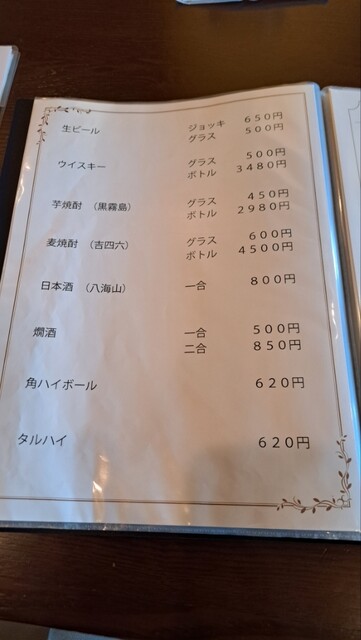 生ビール ジョッキ 650円
グラス 500円
ウイスキー グラス 500円
ボトル 3480円
芋焼酎 （黒霧島） グラス 450円
ボトル 2980円
麦焼酎 （吉四六） グラス 600円
ボトル 4500円
日本酒 （八海山） 一合 800円
燗酒 一合 500円
二合 850円
角ハイボール 620円
タルハイ 620円